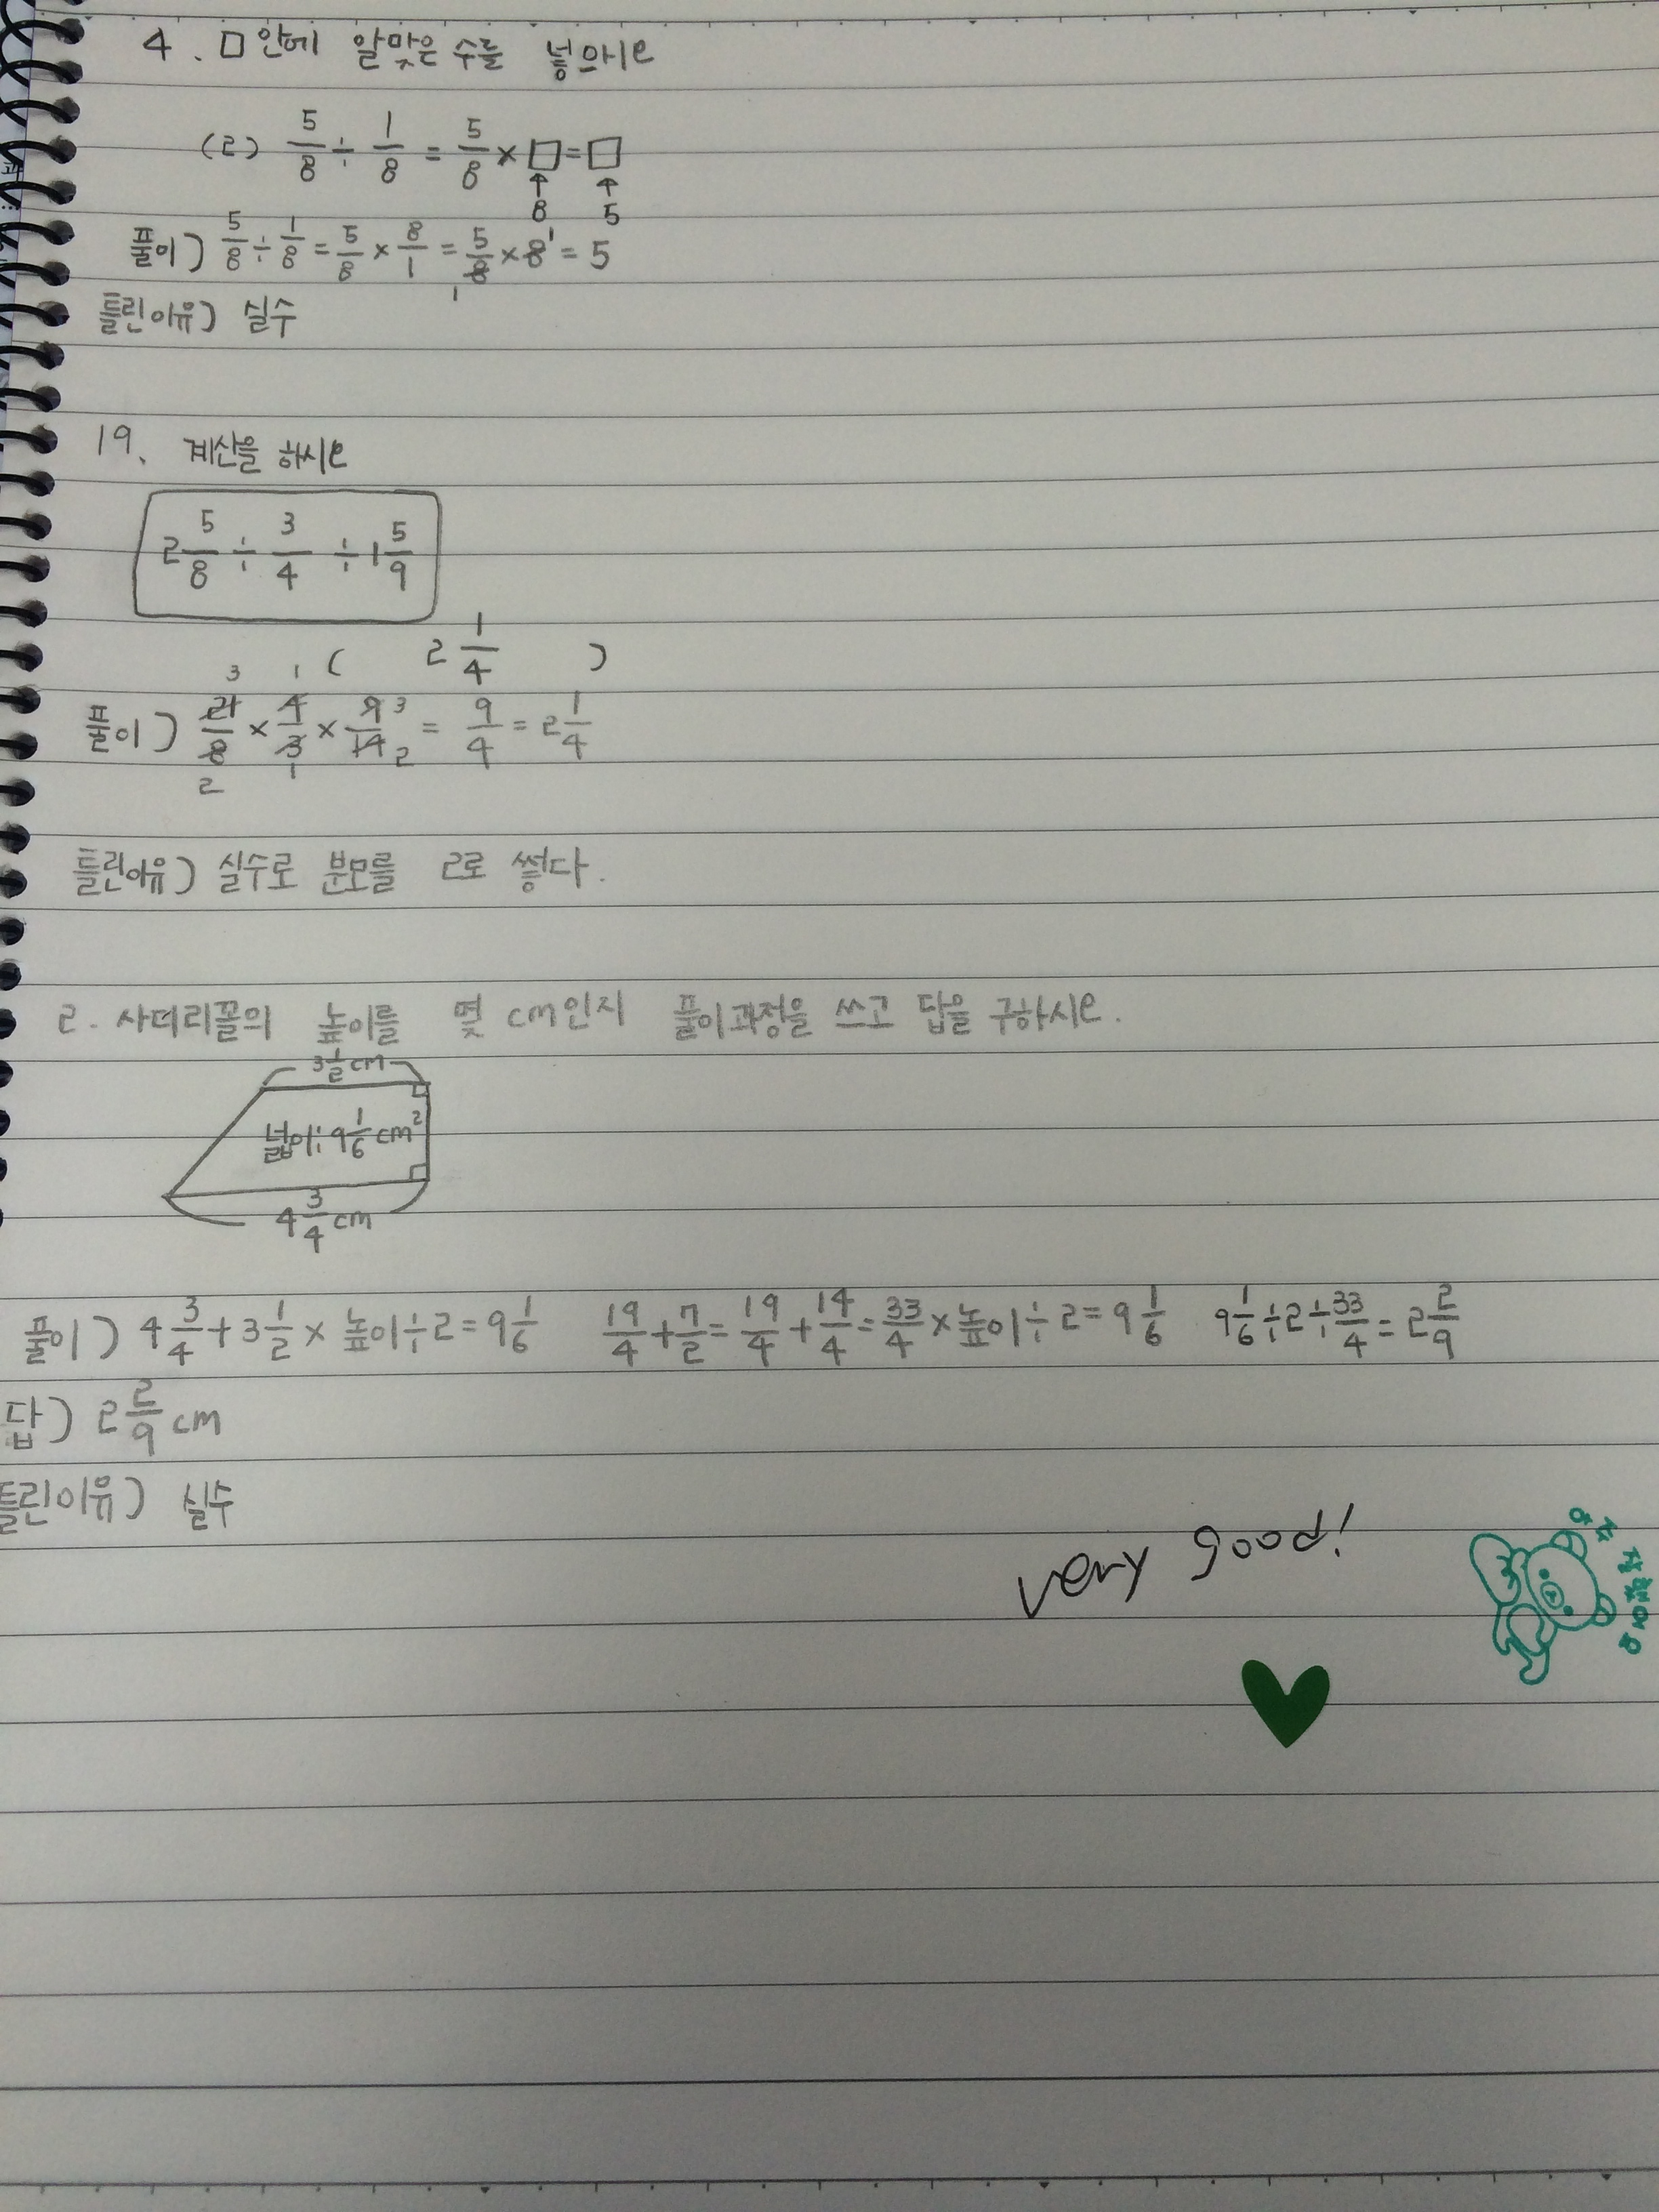 4. □안에 알맞은 수를 넣으시오
(2) 5/8 ÷ 1/8 = 5/8 × □ = □
↑ ↑
8 5
풀이) 5/8 ÷ 1/8 = 5/8 × 8/1 = 5/8 × 8 = 5
1 1
틀린이유) 실수
19. 계산을 하시오
2 5/8 ÷ 3/4 ÷ 1 5/9
( 2 1/4 )
3 1
풀이) 21/8 × 4/3 × 9/14 = 9/4 = 2 1/4
3 2
2 1
틀린이유) 실수로 분모를 2로 썼다.
2. 사다리꼴의 높이를 몇 cm인지 풀이과정을 쓰고 답을 구하시오.
3 1/2 cm
넓이: 9 1/6 cm²
4 3/4 cm
풀이) 4 3/4 + 3 1/2 × 높이 ÷ 2 = 9 1/6 19/4 + 7/2 = 19/4 + 14/4 = 33/4 × 높이 ÷ 2 = 9 1/6 9 1/6 ÷ 2 ÷ 33/4 = 2 2/9
답) 2 2/9 cm
틀린이유) 실수
very good!
참 잘했어요